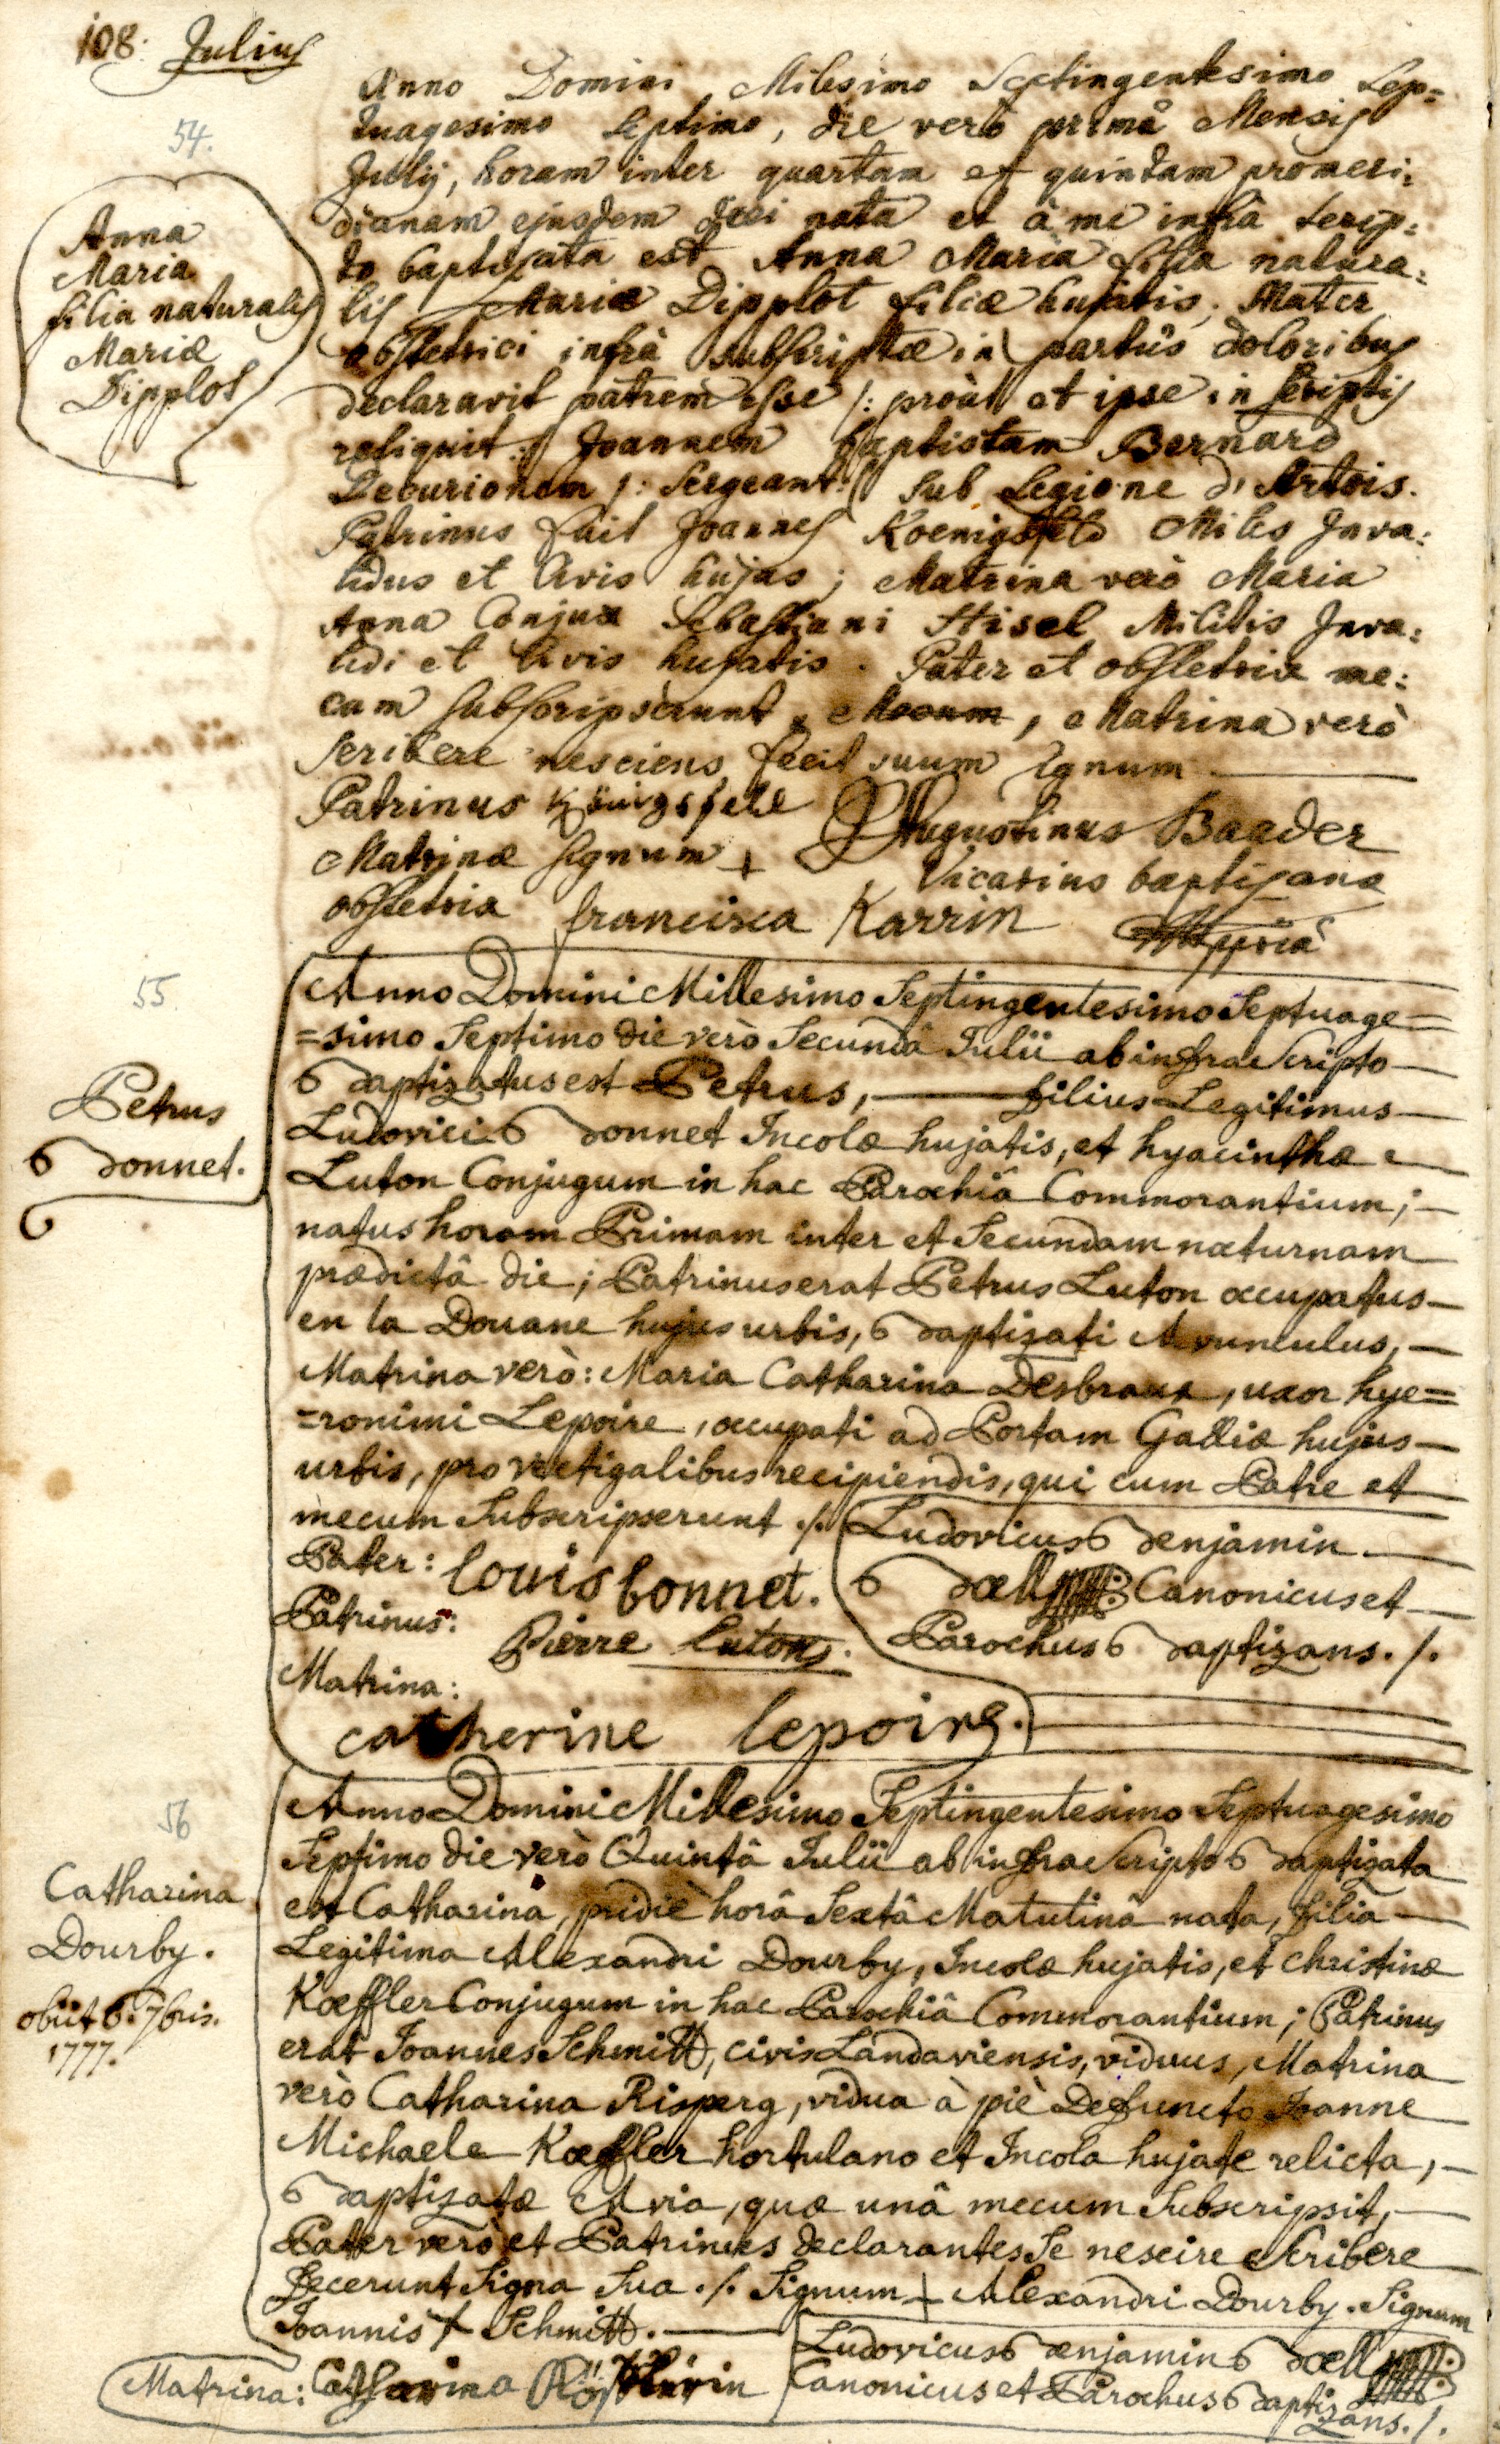 108. Julius
54.
Anna
Maria
filia naturalis
Mariæ
Dipplot
Anno Domini Milesimo Septingentesimo Sep=
tuagesimo Septimo, die verò primâ Mensis
Julij, horam inter quartam et quintam promeri:
dianam ejusdem diei nata et à me infrà scrip:
to baptizata est Anna Maria filia natura:
lis Mariæ Dipplot filiæ hujatis. Mater
obstetrici infrà subscriptæ in partûs doloribus
declaravit patrem esse /: proùt et ipse in scriptis
reliquit :/ Joannem Baptistam Bernard
Decurionem /: Sergeant :/ sub Legione d'Artois.
Patrinus fuit Joannes Koenigsfeld Miles Inva:
lidus et Civis hujas; Matrina verò Maria
Anna Conjux Sebastiani Stisel Militis Inva:
lidi et Civis hujatis. Pater et obstetrix me:
cum subscripserunt, Mecum, Matrina verò
scribere nesciens fecit suum signum
Patrinus Königsfeld
Matrinæ signum +
obstetrix francisca Karrin
P Augustinus Baader
Vicarius baptisans
55
Petrus
Bonnet.
Anno Domini Millesimo Septingentesimo Septuage=
=simo Septimo die verò Secundâ Julii ab infra Scripto
Baptizatus est Petrus, filius Legitimus
Ludovici Bonnet Incolæ hujatis, et hyacinthæ
Luton Conjugum in hac Parochiâ Commorantium;
natus horam Primam inter et Secundam nocturnam
prædictâ die; Patrinus erat Petrus Luton occupatus
en la Douane hujus urbis, Baptizati Avunculus,
Matrina verò: Maria Catharina Desbraux, uxor hye=
=ronimi Lepoire, occupati ad Portam Galliæ hujus
urbis, pro vectigalibus recipiendis, qui cum Patre et
mecum Subscripserunt ./.
Pater: louis bonnet.
Patrinus: Pierre luton.
Matrina:
catherine lepoire.
Ludovicus Benjamin
Boell Canonicus et
Parochus Baptizans. /.
56
Catharina
Dourby.
obiit 6. 7bris.
1777.
Anno Domini Millesimo Septingentesimo Septuagesimo
Septimo die verò Quintâ Julii ab infra Scripto Baptizata
est Catharina, pridiè horâ Sextâ Matutinâ nata, filia
Legitima Alexandri Dourby, Incolæ hujatis, et Christinæ
Kœffler Conjugum in hac Parochiâ Commorantium; Patrinus
erat Joannes Schmitt, civis Landaviensis, viduus, Matrina
verò Catharina Risperg, vidua à piè Defuncto Joanne
Michaele Kœffler hortulano et Incola hujate relicta,
Baptizatæ Avia, quæ unâ mecum Subscripsit,
Pater verò et Patrinus declarantes Se nescire Scribere
fecerunt Signa Sua ./. Signum + Alexandri Dourby. Signum
Joannis + Schmitt.
Matrina: Catharina
Ludovicus Benjamin Boell
Canonicus et Parochus Bapti
zans. /.